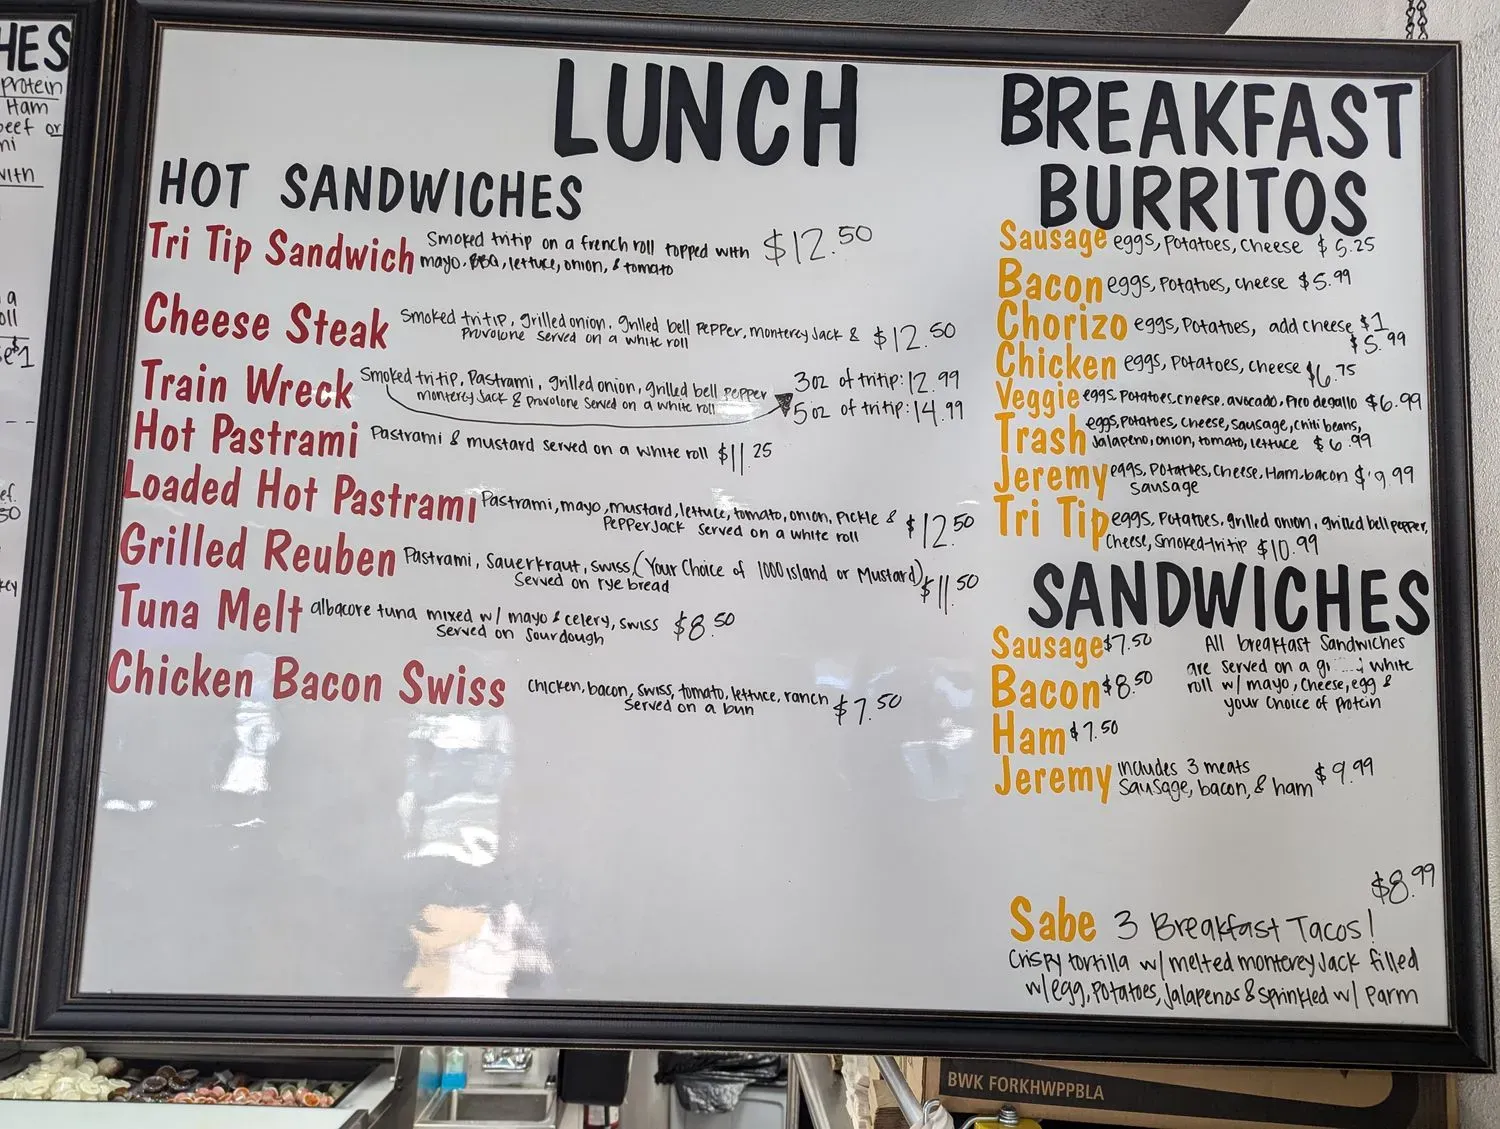 HES
protein
Ham
beef or
with
a
$1
LUNCH
HOT SANDWICHES
Tri Tip Sandwich Smoked tritip on a french roll topped with $12.50
mayo, BBQ, lettuce, onion, & tomato
Cheese Steak Smoked tritip, grilled onion, grilled bell pepper, monterey Jack & $12.50
Provolone served on a white roll
Train Wreck Smoked tritip, Pastrami, grilled onion, grilled bell pepper 3oz of tritip: 12.99
monterey Jack & provolone served on a white roll 5oz of tritip: 14.99
Hot Pastrami Pastrami & mustard served on a white roll $11.25
Loaded Hot Pastrami Pastrami, mayo, mustard, lettuce, tomato, onion, pickle & $12.50
PepperJack served on a white roll
Grilled Reuben Pastrami, Sauerkraut, swiss, (Your Choice of 1000 island or Mustard) $11.50
Served on rye bread
Tuna Melt albacore tuna mixed w/ mayo & celery, swiss $8.50
Served on Sourdough
Chicken Bacon Swiss chicken, bacon, swiss, tomato, lettuce, ranch $7.50
Served on a bun
BREAKFAST
BURRITOS
Sausage eggs, potatoes, cheese $5.25
Bacon eggs, potatoes, cheese $5.99
Chorizo eggs, potatoes, add cheese $1
$5.99
Chicken eggs, potatoes, cheese $6.75
Veggie eggs, potatoes, cheese, avocado, Pico de gallo $6.99
Trash eggs, potatoes, cheese, sausage, chili beans,
Jalapeno, onion, tomato, lettuce $6.99
Jeremy eggs, potatoes, cheese, Ham, bacon $9.99
sausage
Tri Tip eggs, potatoes, grilled onion, grilled bell pepper,
Cheese, smoked-tritip $10.99
SANDWICHES
Sausage $7.50
Bacon $8.50
Ham $7.50
Jeremy includes 3 meats
Sausage, bacon, & ham $9.99
All breakfast Sandwiches
are served on a white
roll w/ mayo, cheese, egg &
your choice of protein
$8.99
Sabe 3 Breakfast Tacos!
Crispy tortilla w/ melted monterey Jack filled
w/ egg, potatoes, Jalapenos & sprinkled w/ parm
BWK FORKHWPPBLA